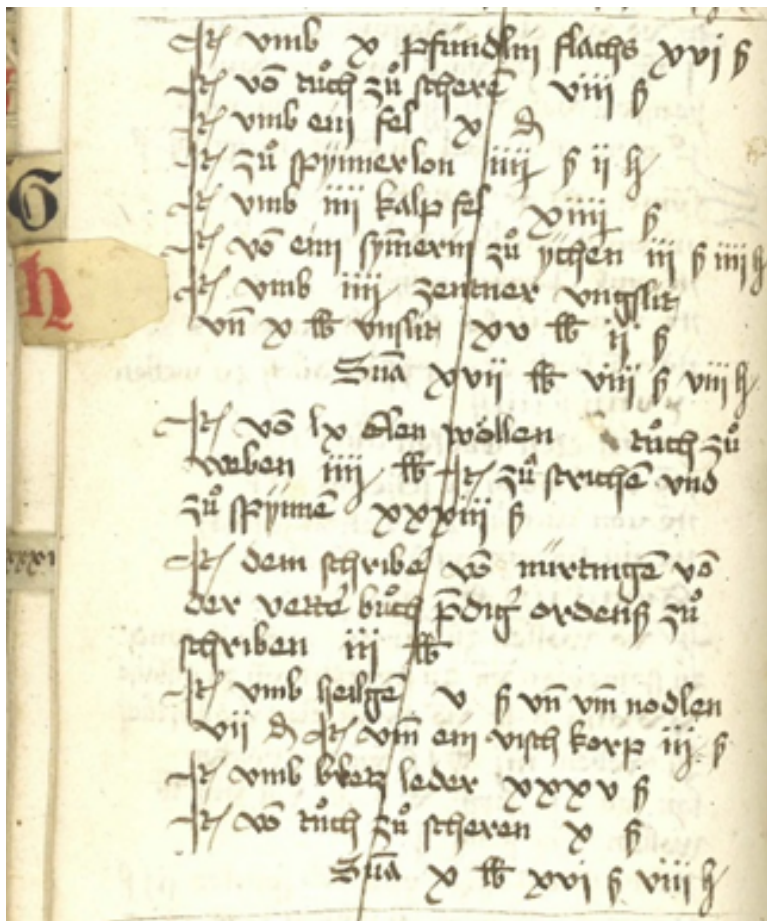 Jt vmb x pfundlin flachs xvi ß
Jt vō tůch zů scherē viii ß
Jt vmb ein fel x ₰
Jt zů spynnerlon iiij ß ij h
Jt vmb iiij kalp fel xiiij ß
Jt vō eim symerin zů ychen iii ß iiij h
Jt vmb iiij zentner vngslit
vn̄ x lb vnslit xv lb ij ß
Sūa xvii lb viii ß viii h
Jt vō lx elen wöllen tůch zů
weben iiij lb Jt zů strichē vnd
zů spynnē xxxiii ß
Jt dem schribē vō nürtingē vō
der vettē bůch p̄dig ordenß zů
schriben iii lb
Jt vmb heilgē v ß vn̄ vm̄ nodlen
vii ₰ Jt vm̄ ein visch korp iij ß
Jt vmb bletz leder xxxv ß
Jt vō tůch zů scheren x ß
Sūa x lb xvi ß viii h
G
h